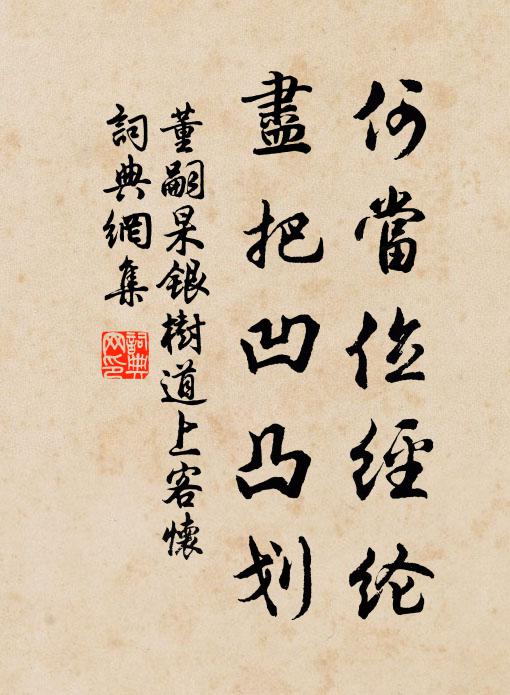 何當任經纶
盡把凹凸划
董嗣杲銀樹道上客懷
詞典網集
詞典网印